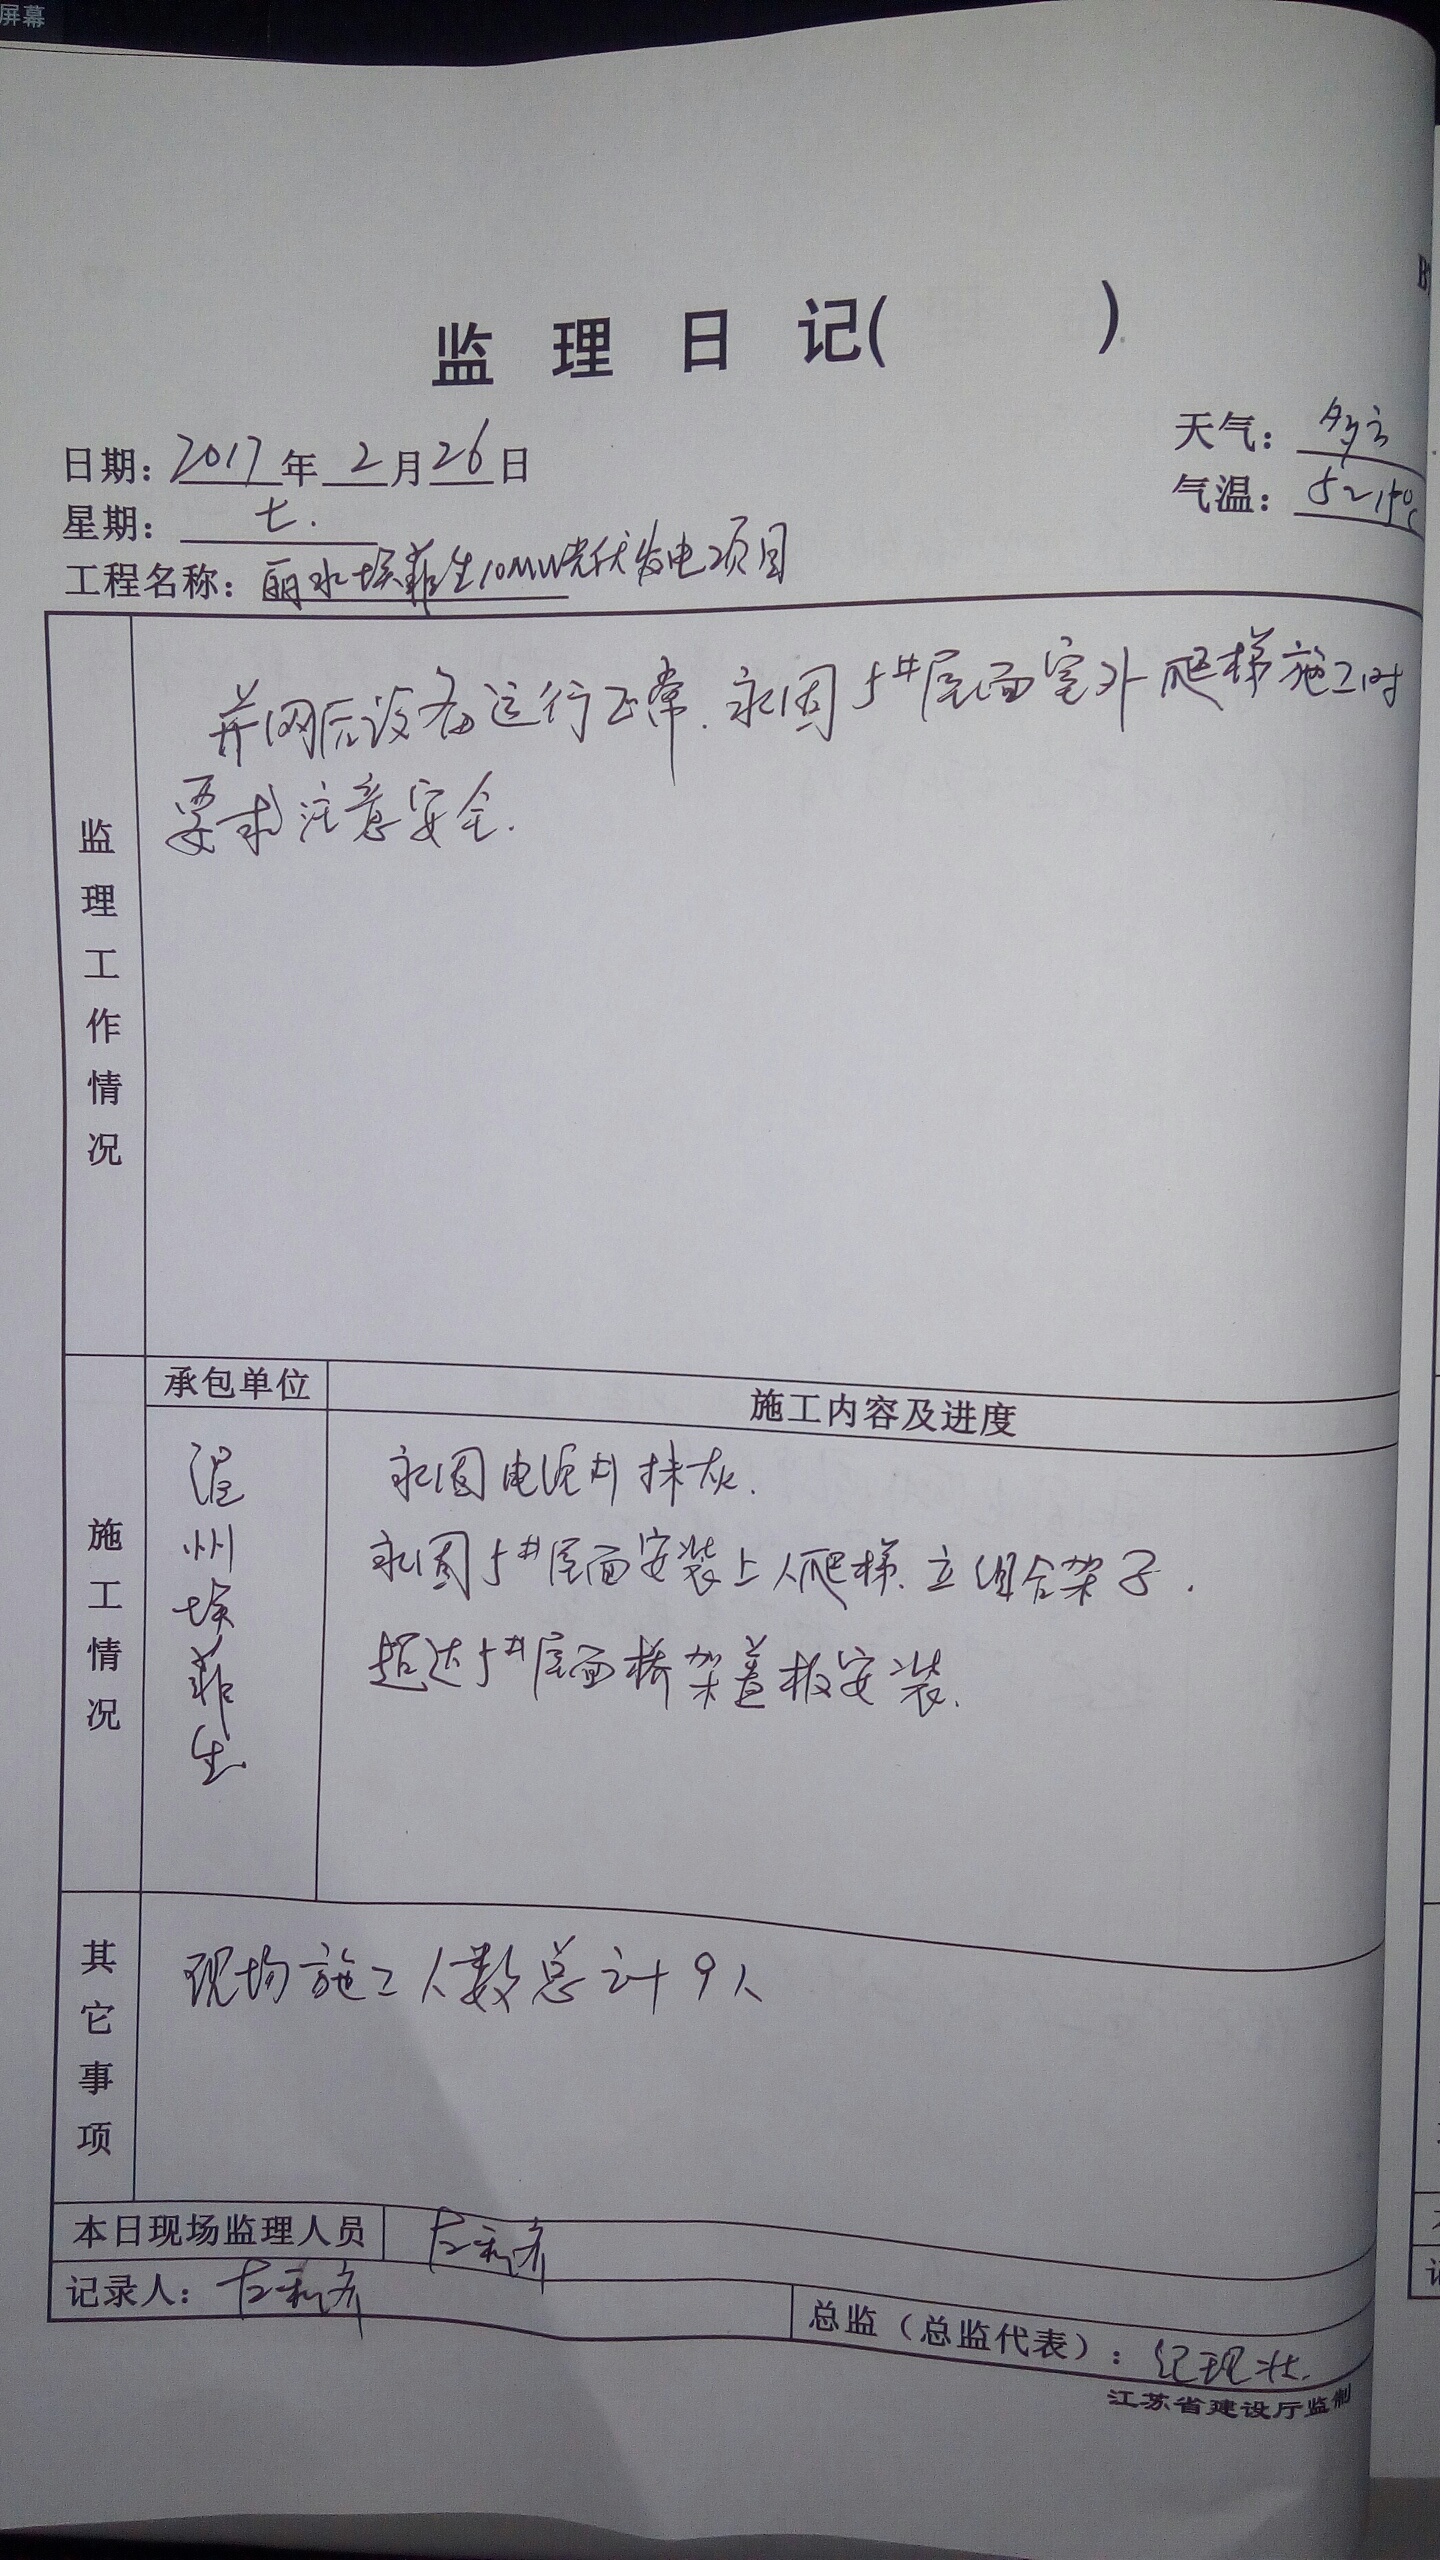 屏幕
监理日记( )
日期：2017年2月26日
天气：多云
星期：七.
气温：5~15℃
工程名称：丽水埃菲生10MW光伏发电项目
监理工作情况
并网后设备运行正常.永固5#屋面室外爬梯施工时
要求注意安全.
承包单位
施工内容及进度
施工情况
温州埃菲生
永固电缆井抹灰.
永固5#屋面安装上人爬梯.立组合架子.
超达5#屋面桥架盖板安装.
其它事项
现场施工人数总计9人
本日现场监理人员
记录人：
总监（总监代表）：纪现壮.
江苏省建设厅监制